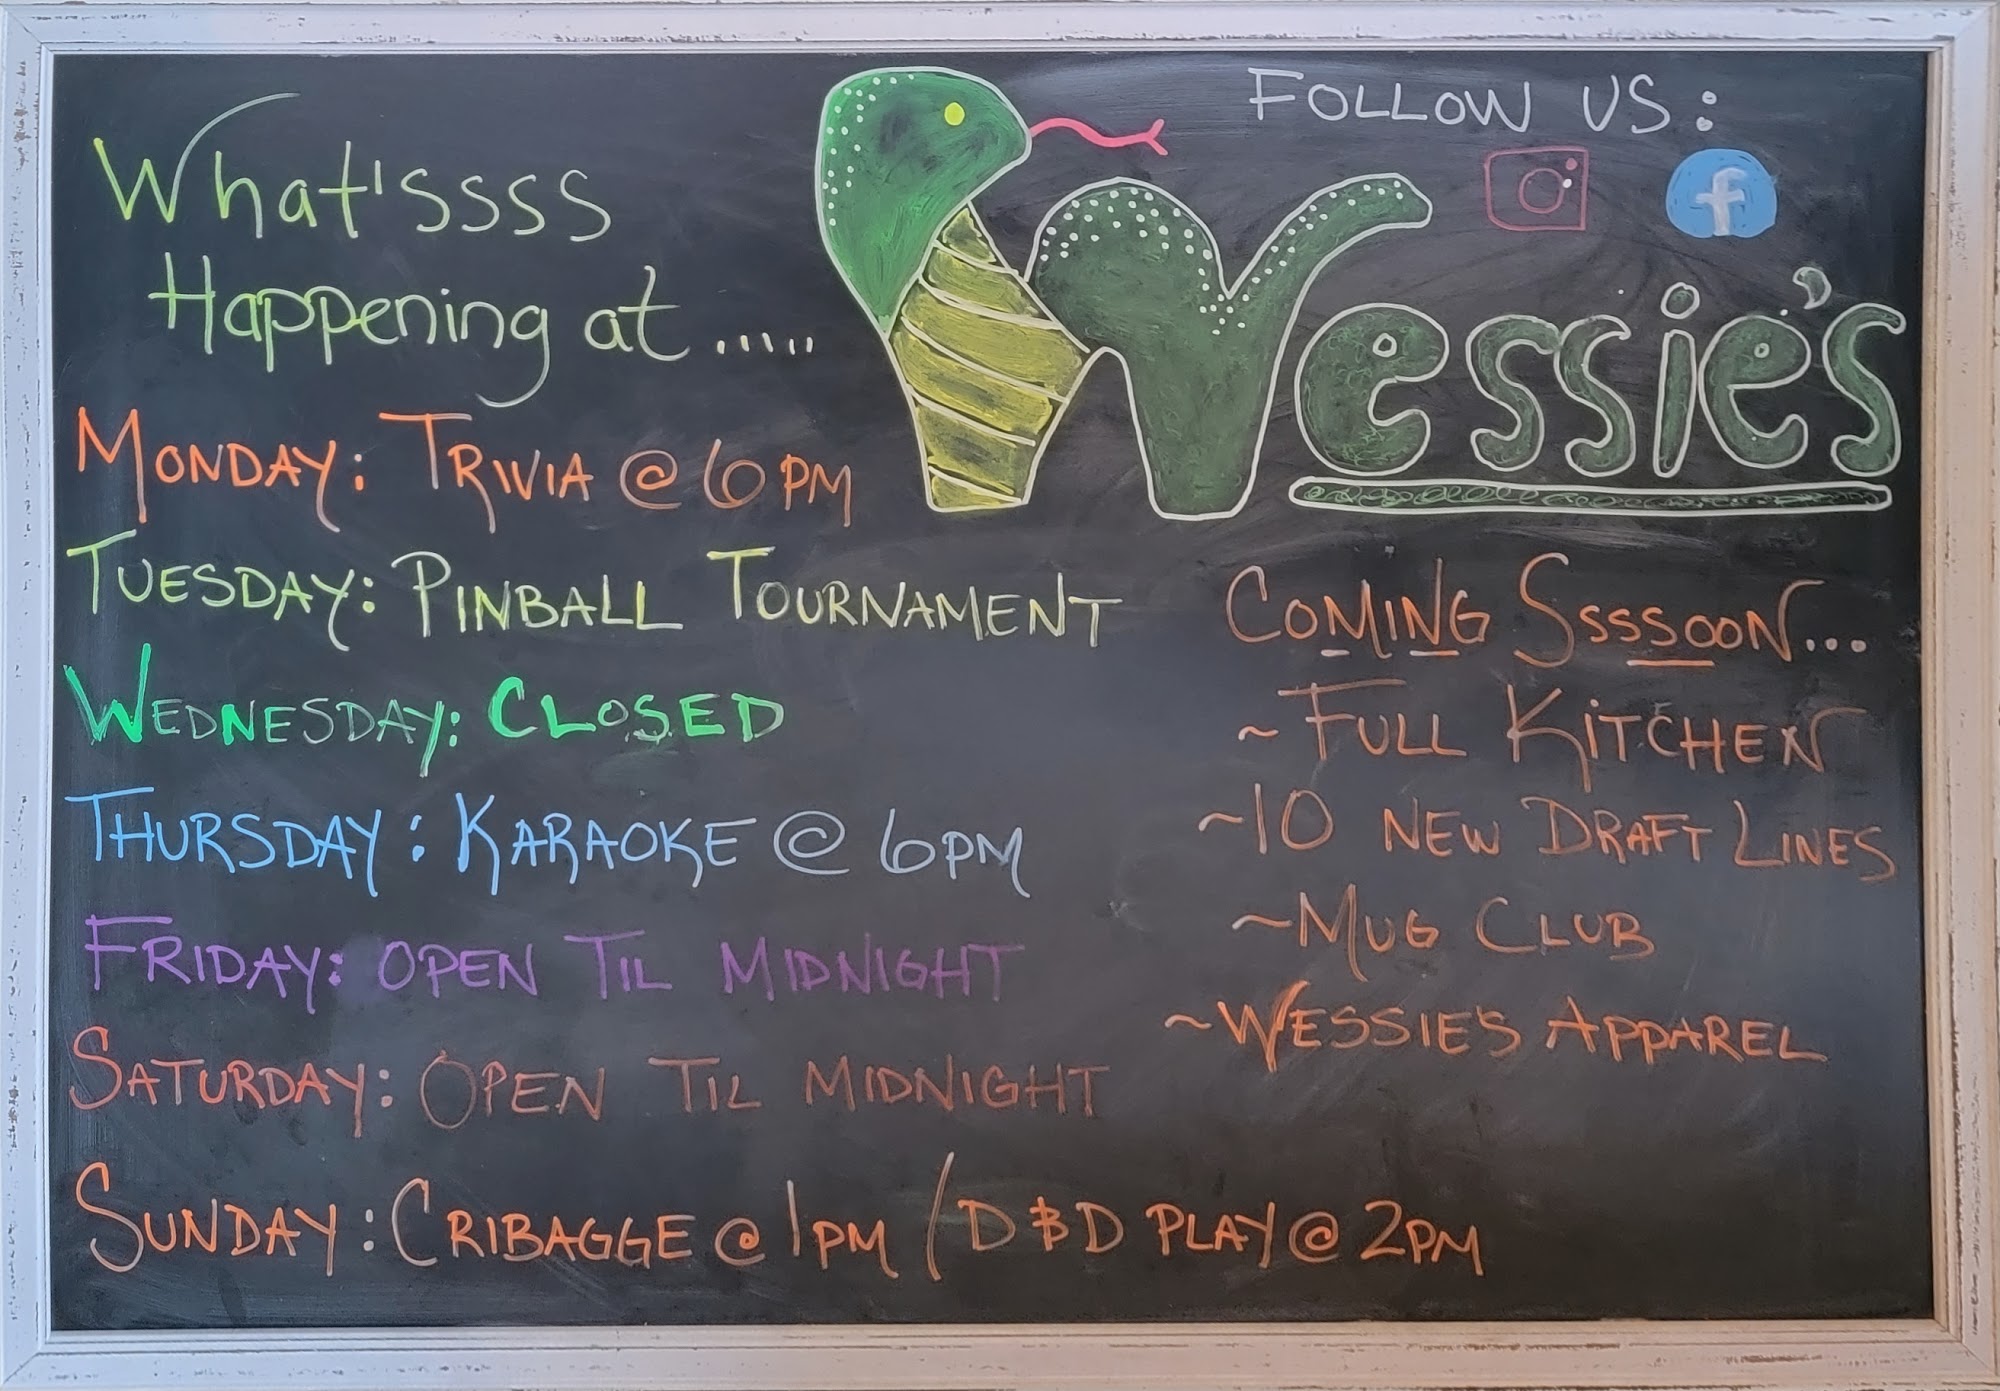 What'ssss
Happening at .....
Wessie's
FOLLOW US:
f
MONDAY: TRIVIA @ 6PM
TUESDAY: PINBALL TOURNAMENT
WEDNESDAY: CLOSED
THURSDAY: KARAOKE @ 6PM
FRIDAY: OPEN TIL MIDNIGHT
SATURDAY: OPEN TIL MIDNIGHT
SUNDAY: CRIBAGGE @ 1PM / D&D PLAY @ 2PM
COMING SSSSSOON...
~ FULL KITCHEN
~10 NEW DRAFT LINES
~MUG CLUB
~WESSIE'S APPAREL